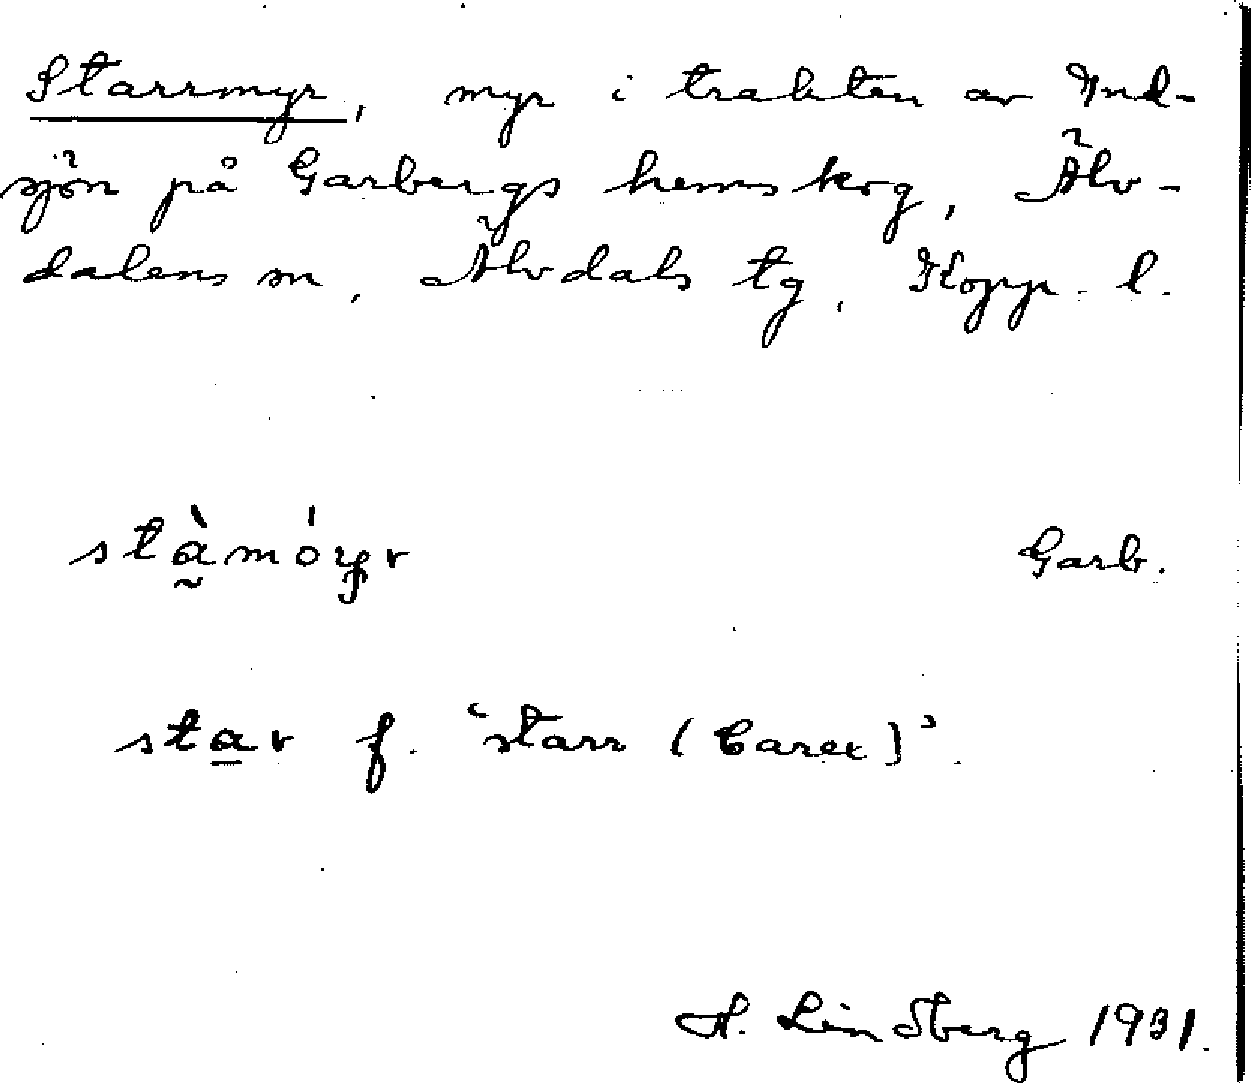 Starrmyr, myr i trakten av Ind-
sjön på Garbergs hemskog, Älv-
dalens sn, Älvdals tg, Kopp. l.
stàmóyr Garb.
star f. 'starr (Carex)'.
H. Lindberg 1931.